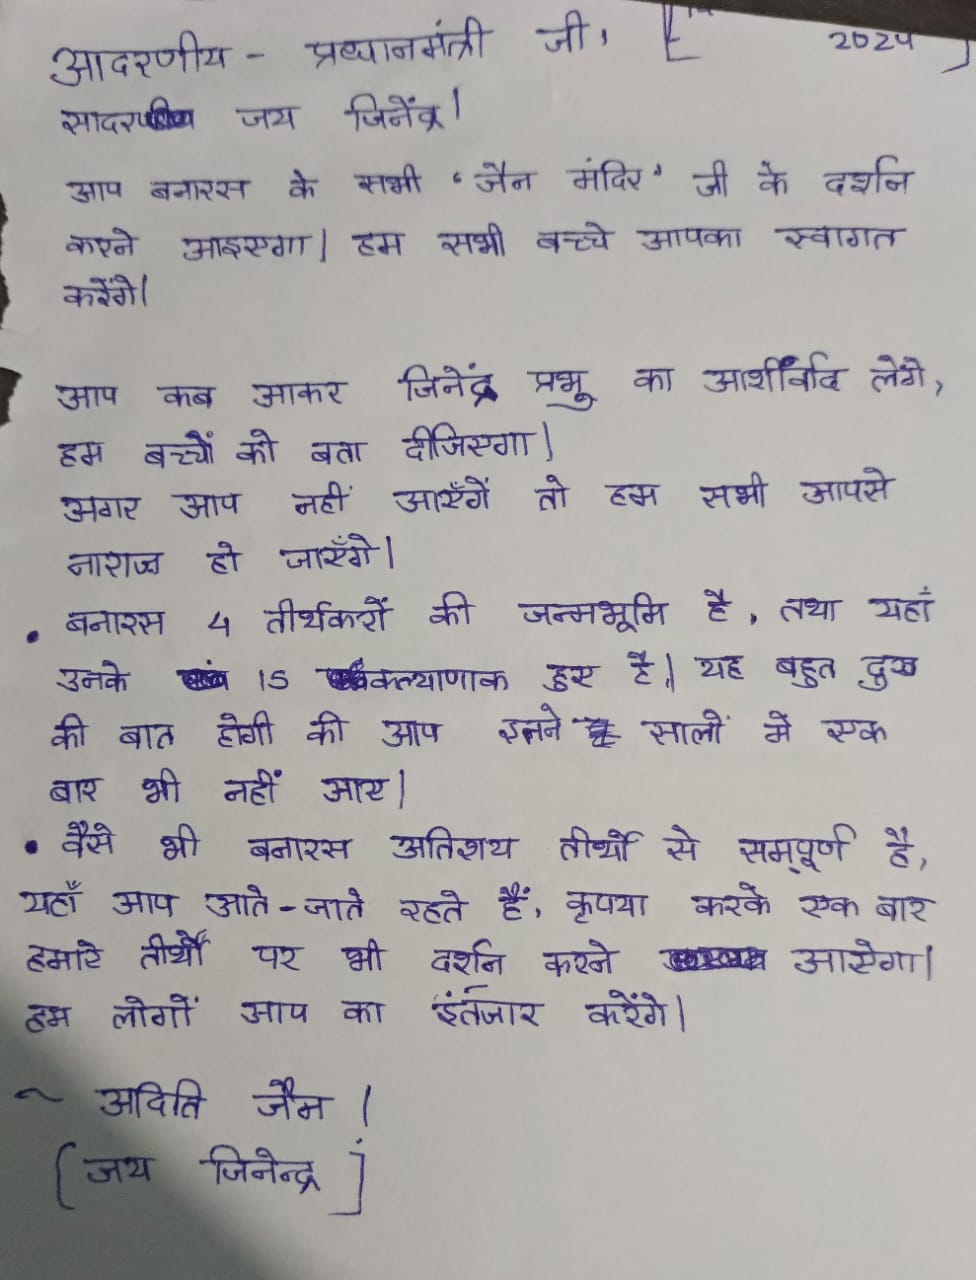 आदरणीय - प्रधानमंत्री जी, [ 2024 ]
सादर जय जिनेंद्र।
आप बनारस के सभी 'जैन मंदिर' जी के दर्शन
करने आइएगा। हम सभी बच्चे आपका स्वागत
करेंगे।
आप कब आकर जिनेंद्र प्रभु का आर्शीवाद लेगे,
हम बच्चों को बता दीजिएगा।
अगर आप नहीं आएँगें तो हम सभी आपसे
नाराज हो जाएँगे।
• बनारस 4 तीर्थकरों की जन्मभूमि है, तथा यहाँ
उनके 15 कल्याणाक हुए है। यह बहुत दुख
की बात होगी की आप इतने सालों मे एक
बार भी नहीं आए।
• वैसे भी बनारस अतिशय तीर्थों से सम्पूर्ण है,
यहाँ आप आते-जाते रहते हैं, कृपया करके एक बार
हमारे तीर्थों पर भी दर्शन करने आऐगा।
हम लोगों आप का इंर्तजार करेंगे।
~ अदिति जैन।
[जय जिनेन्द्र]